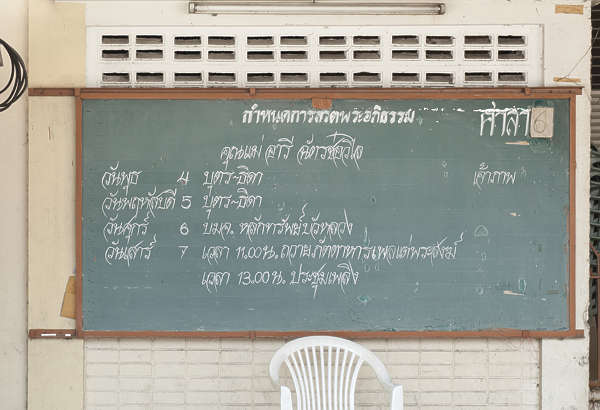 กำหนดการสวดพระอภิธรรม ศาลา 6
คุณแม่ อารี
วันพุธ 4 บุตร-ธิดา เจ้าภาพ
วันพฤหัสบดี 5 บุตร-ธิดา
วันศุกร์ 6 บมจ. หลักทรัพย์บัวหลวง
วันเสาร์ 7 เวลา 11.00 น. ถวายภัตตาหารเพลแด่พระสงฆ์
เวลา 13.00 น. ประชุมเพลิง